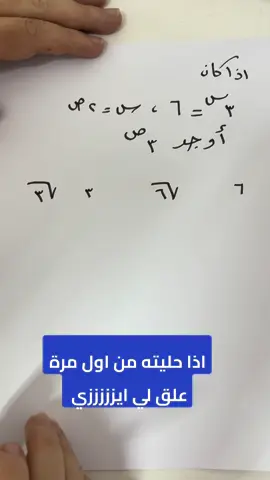 اذا كان
٣س = ٦ ، س = ٢ص
أوجد ٣ص
٦ √٦ ٣ √٣
اذا حليته من اول مرة
علق لي ايزززززي